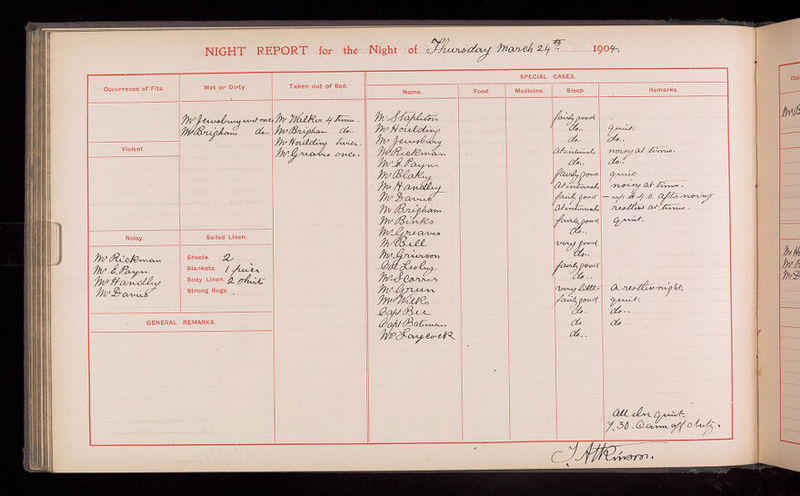 NIGHT REPORT for the Night of Thursday March 24th 1904.
Occurrence of Fits.
Wet or Dirty.
Taken out of Bed.
SPECIAL CASES.
Name. Food. Medicine. Sleep. Remarks.
Mr Jewsbury wet once
Mr Brigham do..
Mr Walker 4 times.
Mr Brigham do..
Mr Houlding twice.
Mr Greaves once.
Violent.
Noisy.
Mr Rickman
Mr E. Payn.
Mr Handley
Mr Davies
Soiled Linen.
Sheets. 2
Blankets. 1 piece
Body Linen. 2 shirts
Strong Rugs. .
GENERAL REMARKS.
Mr Stapleton fairly good
Mr Houlding do.. quiet.
Mr Jewsbury do. do..
Mr Rickman at intervals noisy at times.
Mr E. Payn do.. do..
Mr Blakey fairly good quiet
Mr Handley at intervals noisy at times.
Mr Davies fairly good — up to 4.0. after noisy
Mr Brigham at intervals restless at times.
Mr Binks fairly good quiet.
Mr Greaves do..
Mr Bell very good
Mr Grierson do..
Col Lesley fairly good
Mr Scarris do..
Mr Green very little a restless night.
Mr Wilks fairly good quiet.
Capt Bee do.. do..
Capt Bateman do do..
Mr Laycock do..
All else quiet.
7.30. a.m. off duty.
T Atkinson.
Occ
Mr B